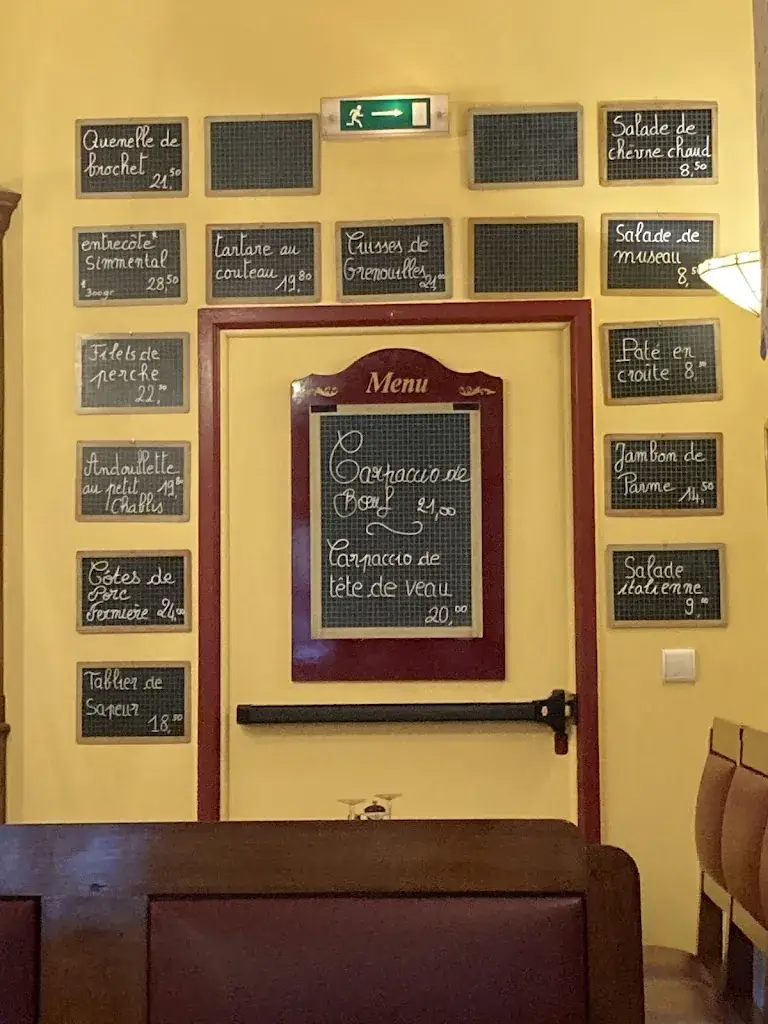 Quenelle de
brochet
21,50
Salade de
chèvre chaud
8,50
entrecôte*
Simmental
* 300gr 28,50
tartare au
couteau 19,80
Cuisses de
Grenouilles
21,00
Salade de
museau
8,50
Filets de
perche
22,50
Pâté en
croûte 8,50
Andouillette
au petit 19,80
Chablis
Jambon de
Parme 14,50
Côtes de
Porc
Fermière 24,00
Salade
italienne
9,00
Tablier de
Sapeur
18,50
Menu
Carpaccio de
Bœuf 21,00
Carpaccio de
tête de veau
20,00